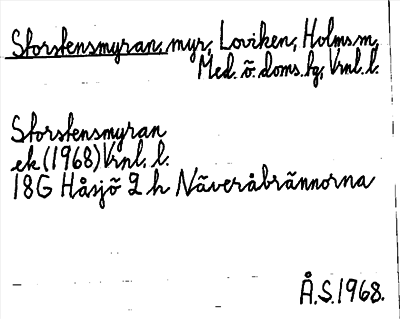 Storstensmyran, myr, Loviken, Holms sn,
Med. ö. doms. tg, Vrnl. l.
Storstensmyran
ek (1968) Vrnl. l.
18G Håsjö 2 h Näveråbrännorna
Å.S. 1968.